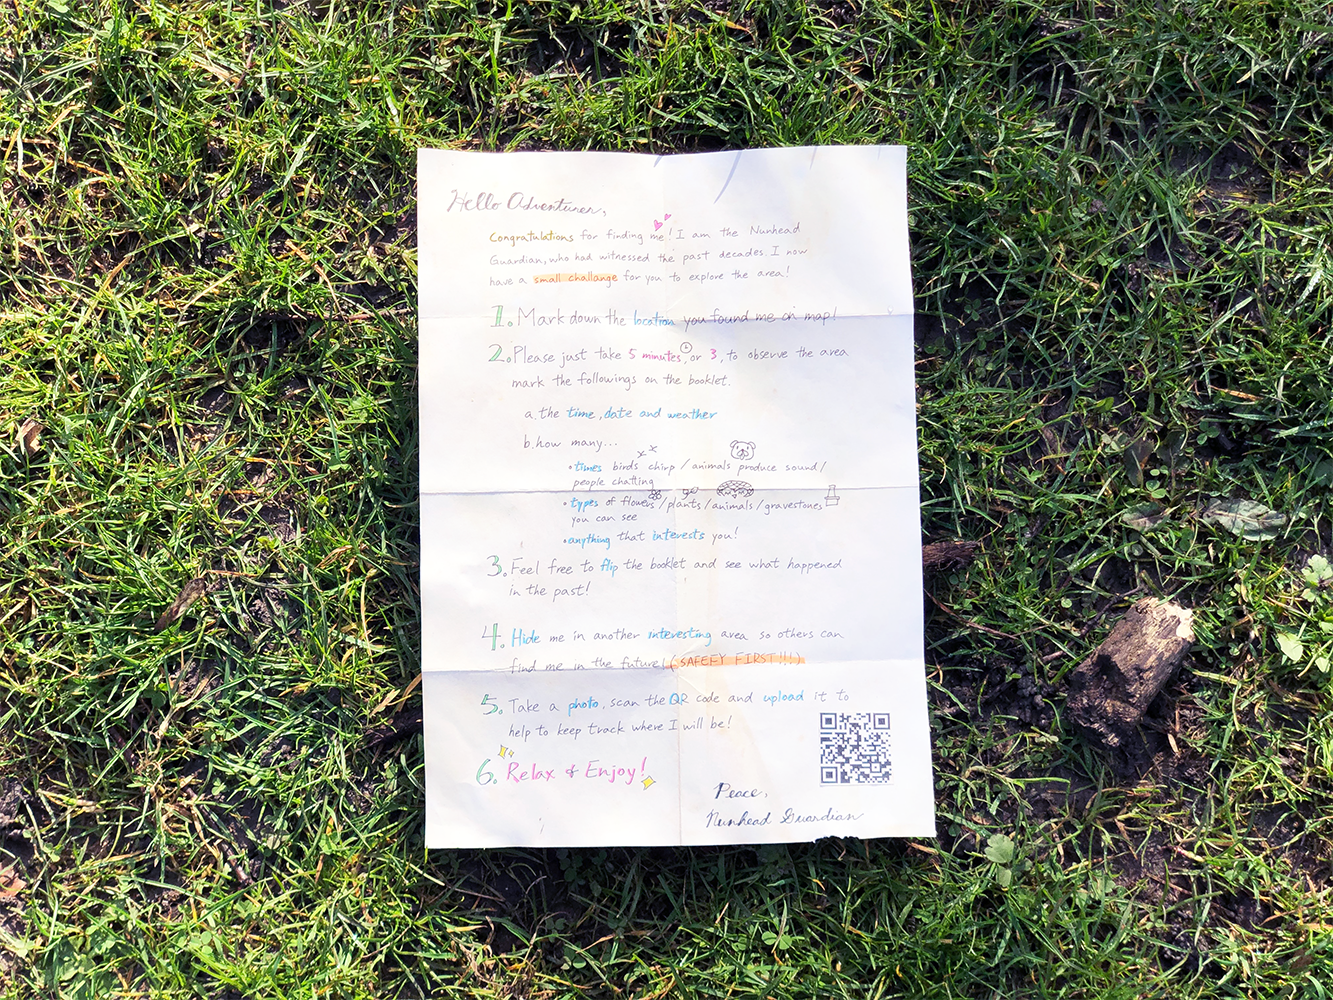 Hello Adventurer,
Congratulations for finding me! I am the Nunhead
Guardian, who had witnessed the past decades. I now
have a small challange for you to explore the area!
1. Mark down the location you found me on map!
2. Please just take 5 minutes, or 3, to observe the area
mark the followings on the booklet.
a. the time, date and weather
b. how many...
• times birds chirp / animals produce sound /
people chatting
• types of flowers / plants / animals / gravestones
you can see
• anything that interests you!
3. Feel free to flip the booklet and see what happened
in the past!
4. Hide me in another interesting area so others can
find me in the future! (SAFEFY FIRST!!!)
5. Take a photo, scan the QR code and upload it to
help to keep track where I will be!
6. Relax & Enjoy!
Peace,
Nunhead Guardian